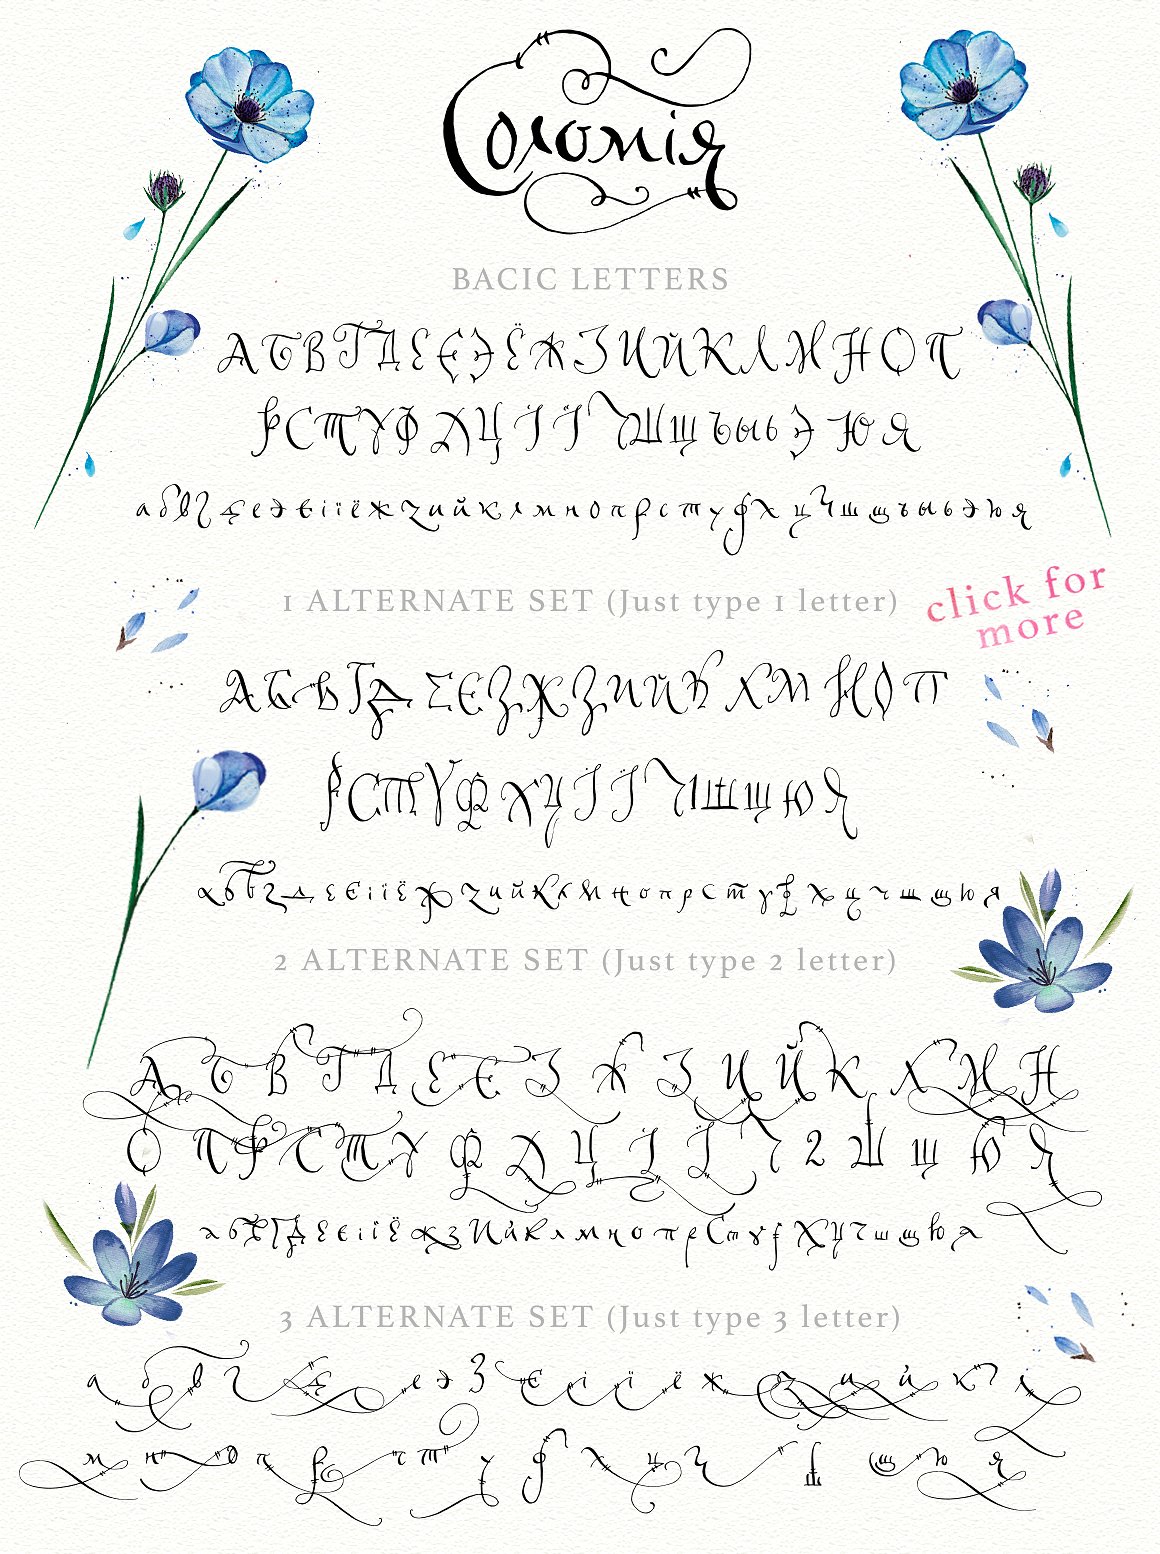 Соломія
BACIC LETTERS
А Б В Г Д Е Є Э Ё Ж З И Й К Л М Н О П
Р С Т У Ф Х Ц І Ї Ч Ш Щ Ъ Ы Ь Э Ю Я
а б в г д е э є і ї ё ж з и й к л м н о п р с т у ф х ц ч ш щ ъ ы ь э ю я
1 ALTERNATE SET (Just type 1 letter)
click for
more
А Б В Г Д Е Є З Ж З И Й К Л М Н О П
Р С Т У Ф Х Ц І Ї Ч Ш Щ Ю Я
а б в г д е є і ї ё ж з и й к л м н о п р с т у ф х ц ч ш щ ю я
2 ALTERNATE SET (Just type 2 letter)
А Б В Г Д Е Є З Ж З И Й К Л М Н
О П Р С Т У Ф Х Ц І Ї Ч 2 Ш Щ Ю Я
а б в г д е є і ї ё ж з и й к л м н о п р с т у ф х ц ч ш щ ю я
3 ALTERNATE SET (Just type 3 letter)
а б в г д е э З є і ї ё ж з и й к л
м н о п р с т у ф х ц ч ш щ ю я